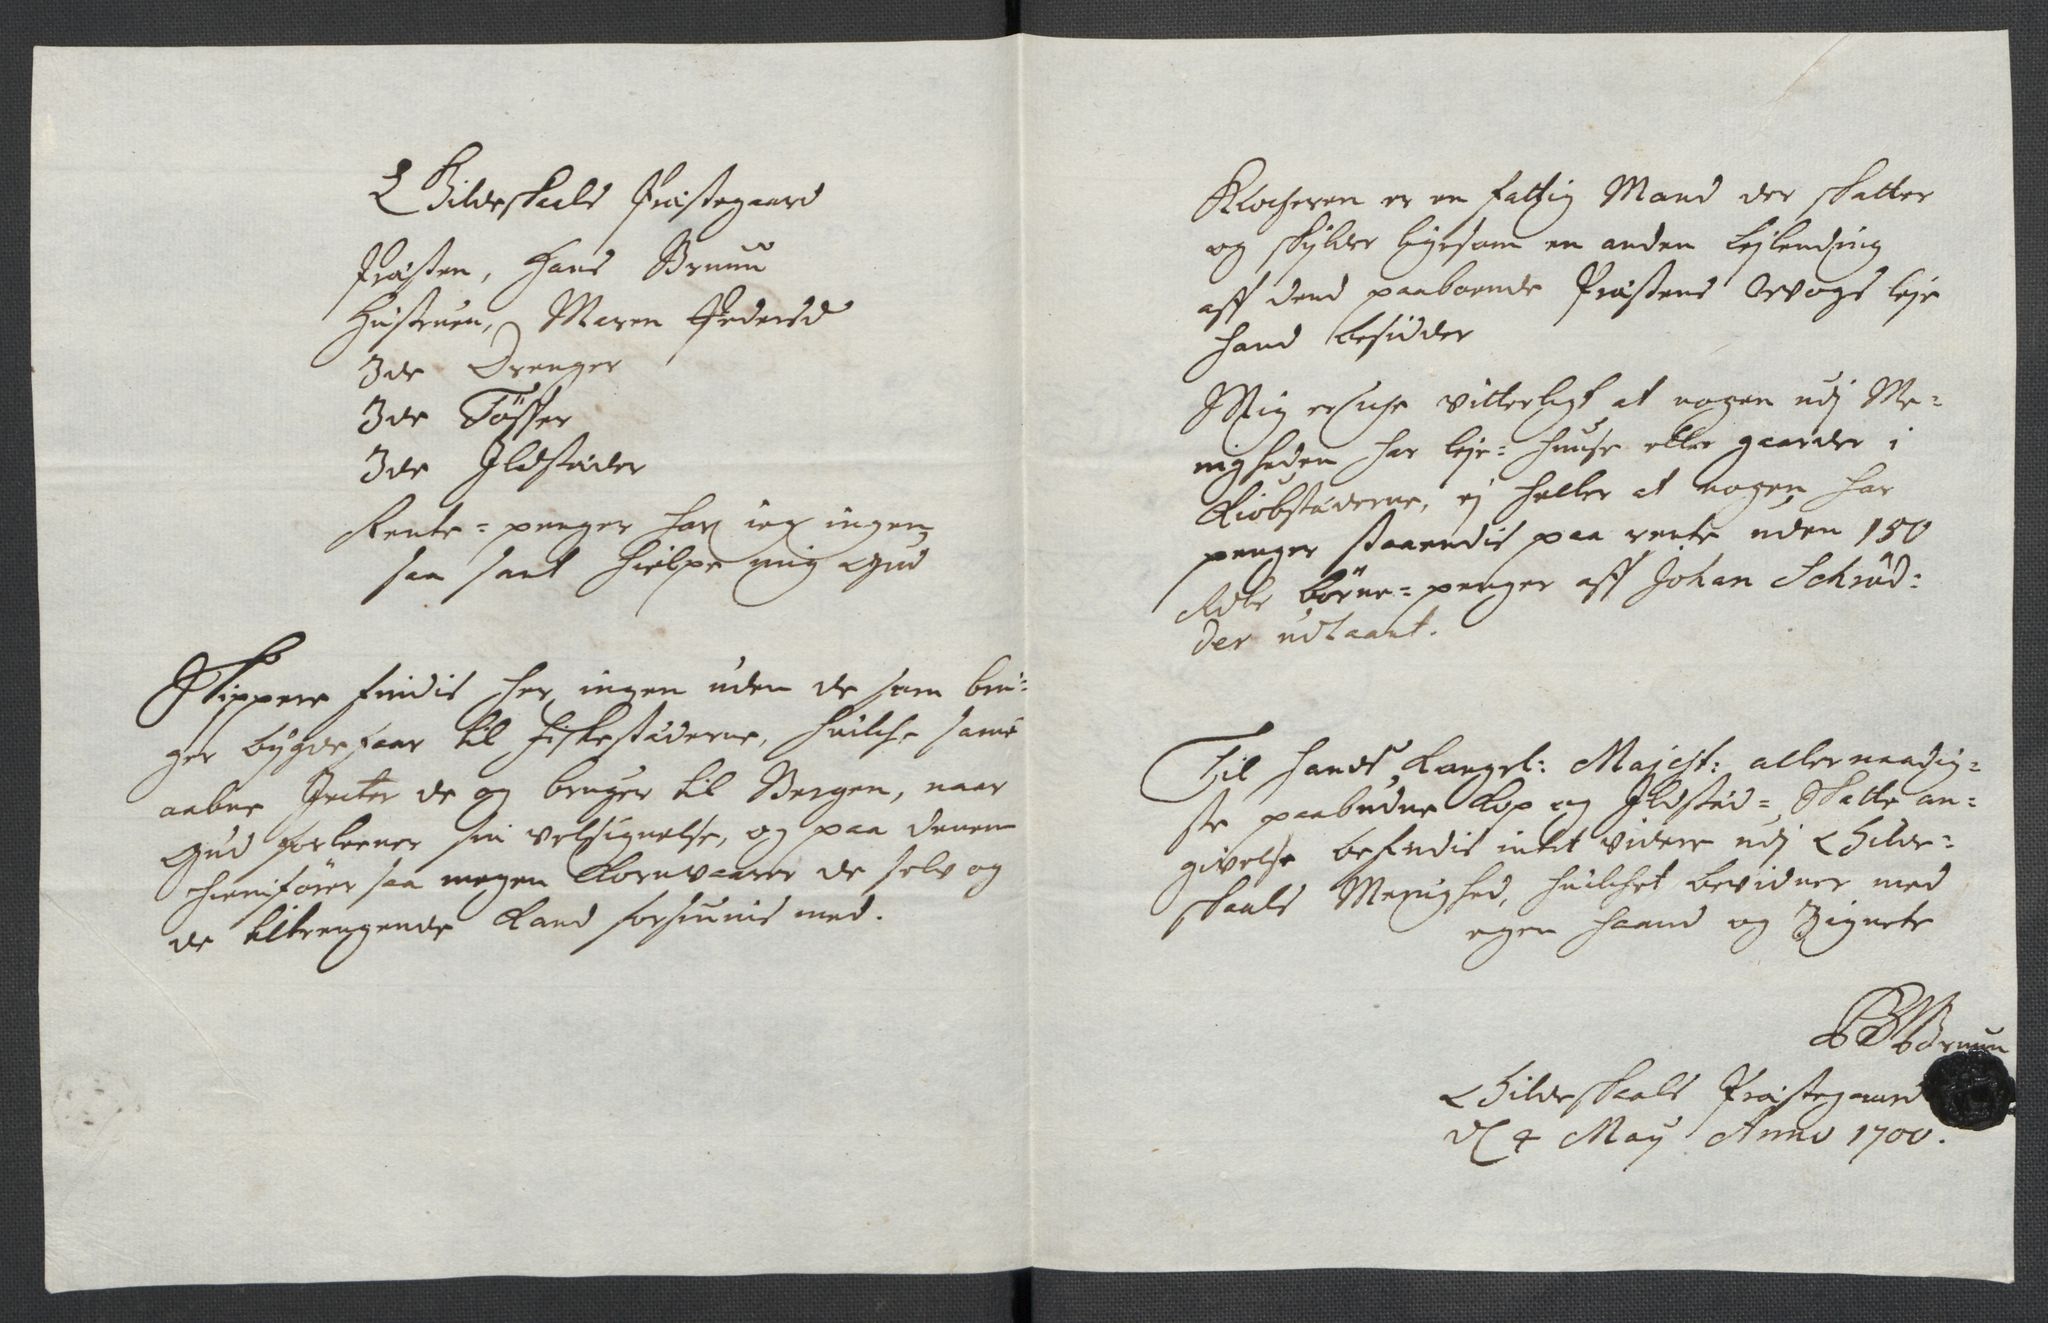 Gildeskaals Præstegaard
Præsten, Hans Bruun
Hustruen, Maren Pedersd
3de Drenger
3de Tösser
3de Ildstæder
Rente-penger har ieg ingen
saa sant hielpe mig Gud
Skippere findis her ingen uden de som bru-
ger bygdefaar til fiskestæderne, huilche same
aabne Jecter de og bruger til Bergen, naar
Gud forleener sin velsignelse, og paa denem
hiemfører saa megen Kornvaarer de selv og
de tiltrengende kand forsiunis med.
Klocheren er en fattig Mand der skatter
og skylder ligesom en anden leylending
aff dend paaboende Præstens leje
hand besidder
Mig er icke vitterligt at nogen udj Me-
nigheden har leje-huuse eller gaarder i
Kiøbstæderne, ej heller at nogen har
penger staaendis paa rente uden 150
Rdr börne-penger aff Johan Schrød-
der udlaant.
Til hands Kongel: Majest: allernaadig-
ste paabudne Kop og Ildstæd-Skatte an-
givelse befindis intet videre udj Gilde-
skaals Menighed, huilchet bevidner med
egen haand og Zignete
HBruun
Gildeskaals Præstegaard
d 4 May Anno 1700.